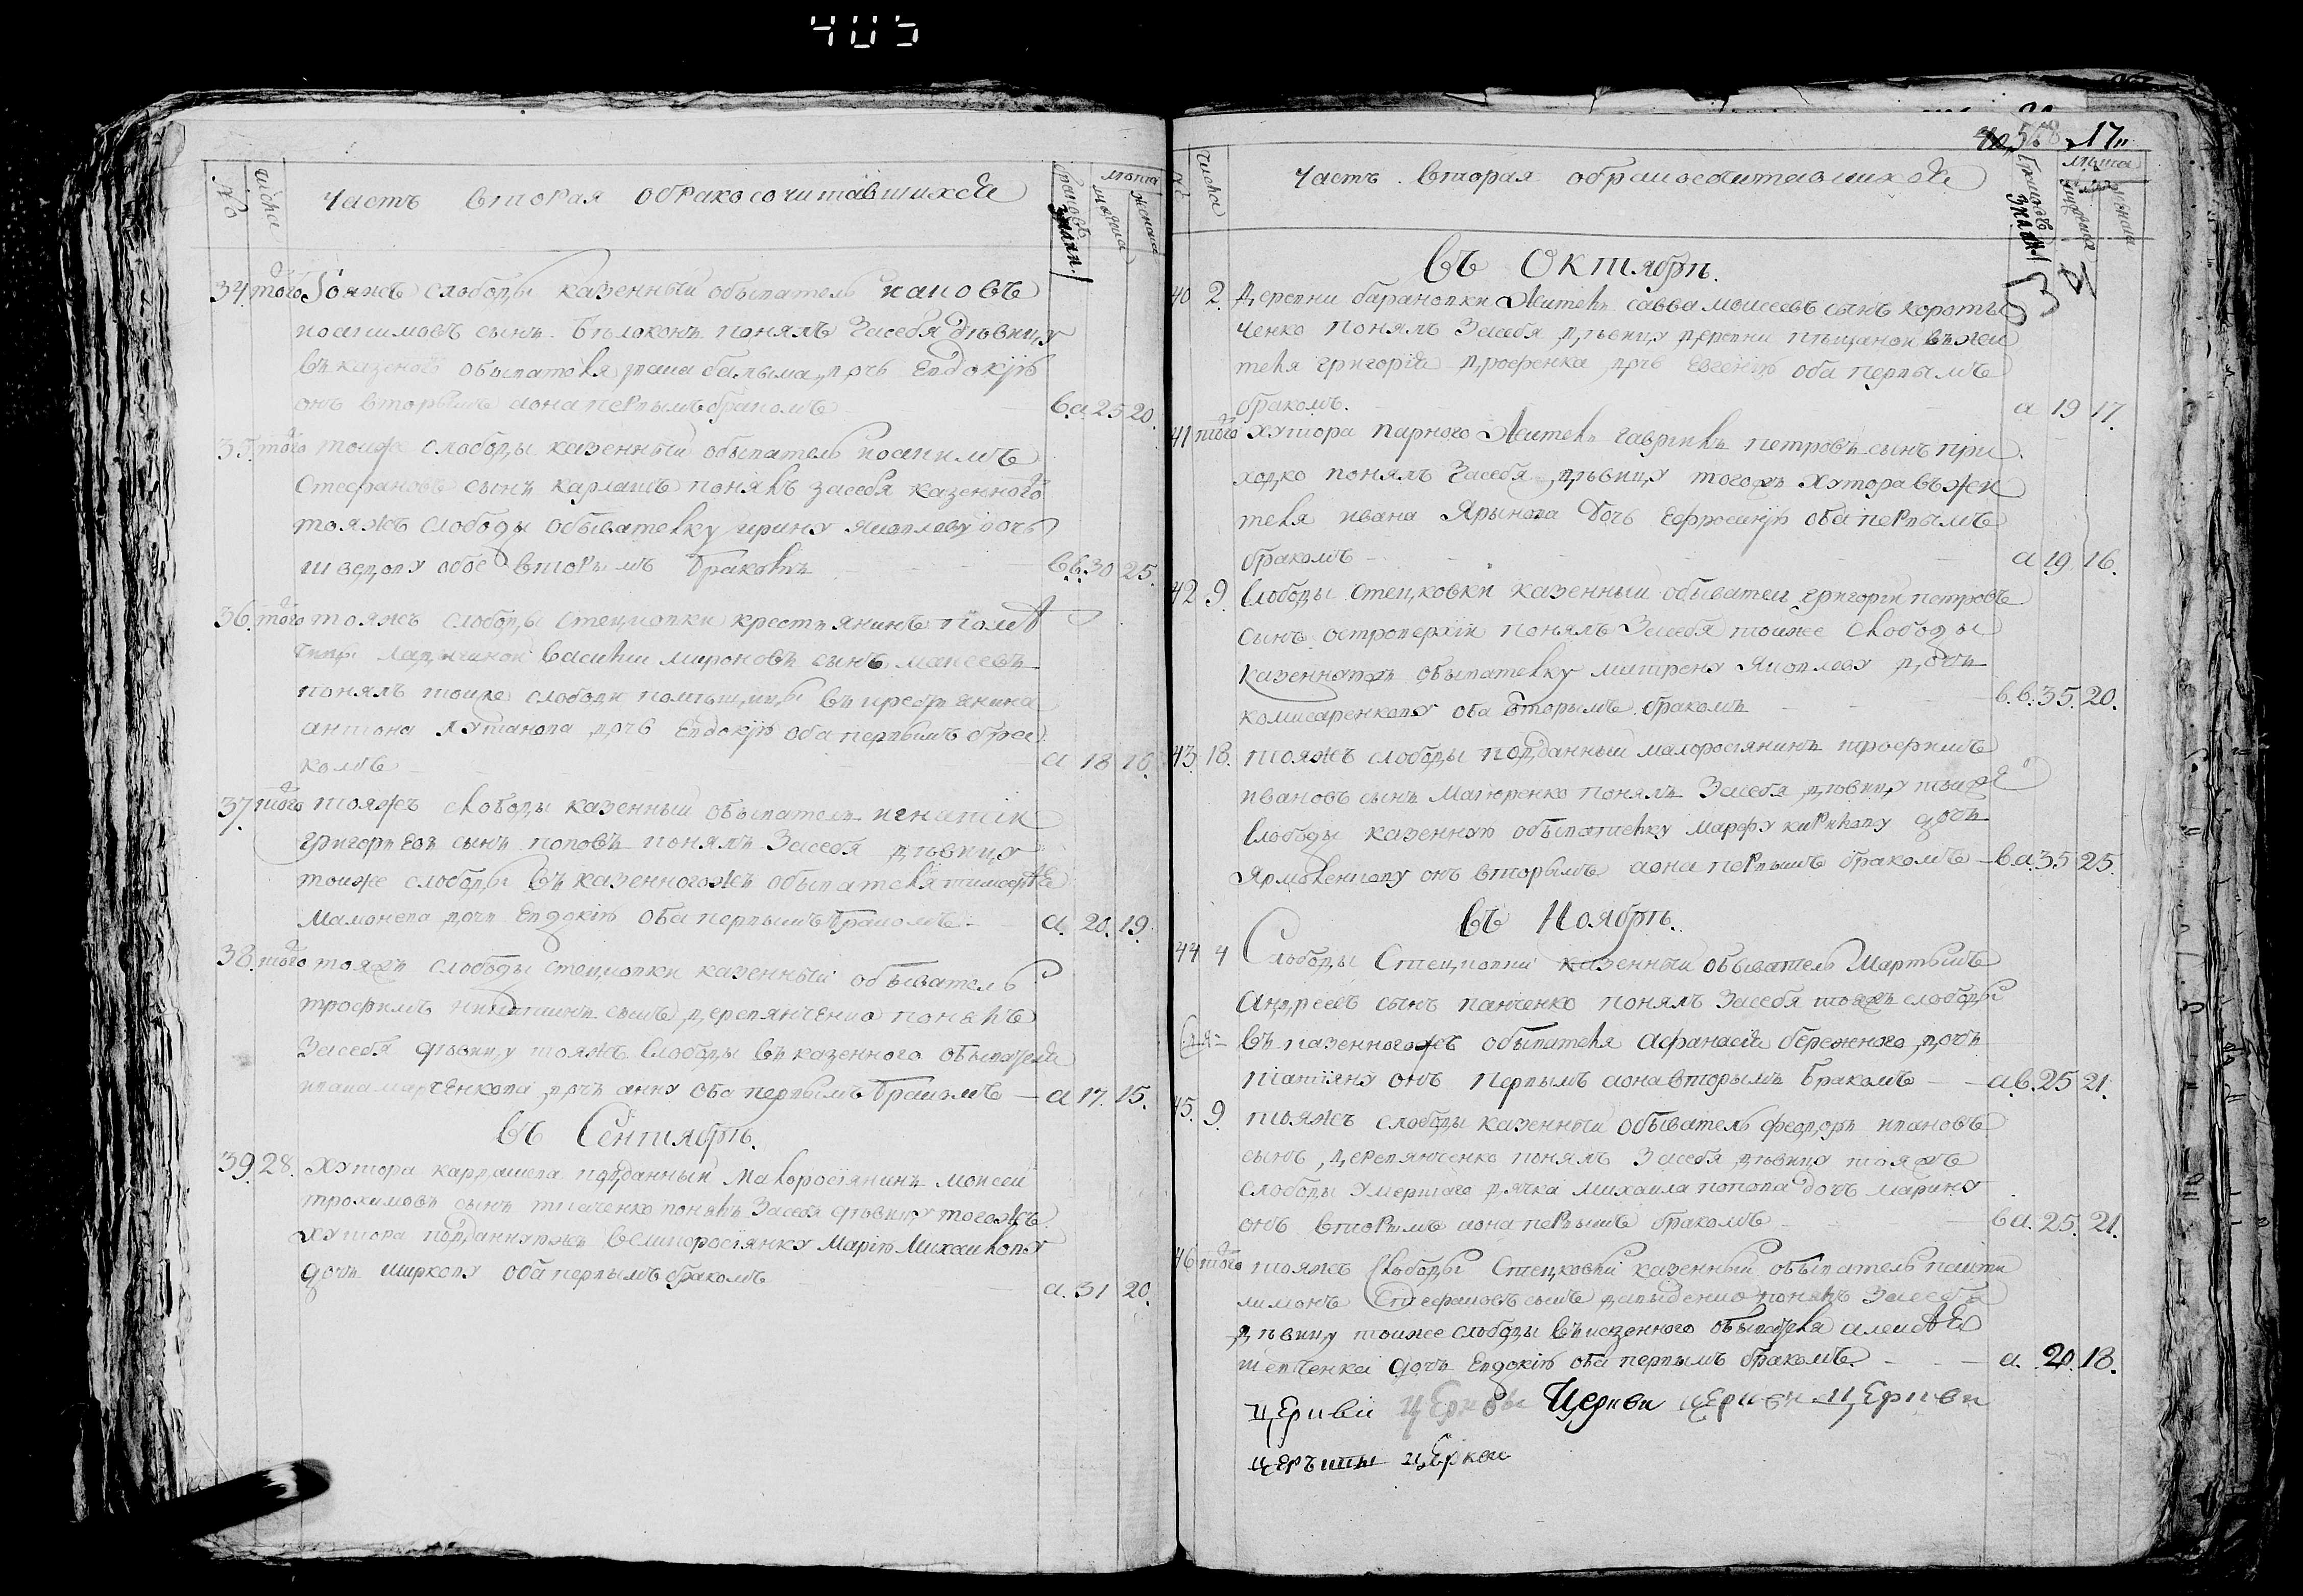 405
№ числа Часть вторая обракосочитавшихся браковъ знаки лѣта мужеска женска
34 того Тояжъ слободы казенный обыватель яковъ
иоакимовъ сынъ Бѣлоконь понялъ засебя дѣвицу
въказеного обывателя дочь Евдокѣю
онъ вторымъ аона первымъ бракомъ в.а. 25 20.
35. того тоижъ слободы казенный обыватель иоакимъ
Стефановъ сынъ карпашъ понялъ засебя казенного
тояжъ слободы обывателку ирину яковлеву дочь
шведову обое вторымъ бракомъ в.в. 30 25.
36. того тояжъ слободы стецковки крестьянинъ
василий мироновъ сынъ моисеевъ
понялъ тоиже слободи помѣщицы въ крестьянина
антона дочь Евдокѣю оба первымъ бра
комъ а 18 16.
37. того тояжъ слободы казенный обыватель игнатѣй
григориевъ сынъ поповъ понялъ Засебя дѣвицу
тоиже слободы въ казенногожъ обывателя тимофѣя
Мамонова дочь Евдокѣю оба первымъ бракомъ а. 20. 19.
38. того тояжъ слободы стецковки казенный обыватель
трофимъ никитинъ сынъ деревянченко понялъ
Засебя дѣвицу тояжъ слободы въ казенного обывателя
ивана марченкова дочь анну оба первымъ бракомъ а 17. 15.
въ Сентябрѣ.
39. 28. Хутора карпашева подданный малоросѣянинъ моисей
трохимовъ сынъ ткаченко понялъ Засебя дѣвицу тогожъ
хутора подданнуюжъ великоросѣянку Марѣю Михаилову
дочь ширкову оба первымъ бракомъ а. 31 20.
568 17
№ числа Часть вторая обракосочитавшихся браковъ знаки лѣта женска
въ Октябрѣ.
40 2. Деревни барановки Жителъ савва моисеевъ сынъ коротъ
ченко понялъ Засебя дѣвицу деревни пѣщанои въжи
теля григорѣя дрофенка дочь Евгенѣю оба первымъ
бракомъ. а 19 17.
41 того хутора парного Жителъ гаврѣилъ петровъ сынъ при
ходко понялъ Засебя дѣвицу тогожъ хутора въжи
теля ивана Ярынова дочь Ефросинѣю оба первымъ
бракомъ а 19. 16.
42 9. Слободы Стецковки казенный обыватель григорий петровъ
синъ островерхѣй понялъ Засебя тоиже слободы
казеннуюжъ обывателку матрену яковлеву дочь
комисаренкову оба вторымъ бракомъ в.в. 35. 20.
43. 18. тояжъ слободы подданный малоросѣянинъ трофимъ
ивановъ сынъ Мазюренко понялъ Засебя дѣвицу тоиже
слободы казенную обывателку марфу кирилову дочь
ярмоленкову онъ вторымъ аона первымъ бракомъ в.а. 35 25.
въ Ноябрѣ.
44 4 Слободы Стецковки казенный обыватель Мартынъ
андреевъ сынъ панченко понялъ Засебя тояжъ слободы
въ казенногожъ обывателя афанасѣя бережного дочь
татѣяну онъ первымъ аона вторымъ бракомъ а.в. 25 21.
45. 9. тояжъ слободы казенный обыватель феодоръ ивановъ
сынъ деревянченко понялъ Засебя дѣвицу тояжъ
слободы умершаго дячка михаила попова дочь марину
онъ вторымъ аона первымъ бракомъ в а. 25. 21.
46 того тояжъ слободы Стецковки казенный обыватель панти
лимонъ Стефановъ сынъ давыденко понялъ Засебя
дѣвицу тоиже слободы въказенного обывателя алексѣя
шевченка дочь Евдокѣю оба первымъ бракомъ. а. 20. 18.
церкви церкви церкви церкви церкви
церкви